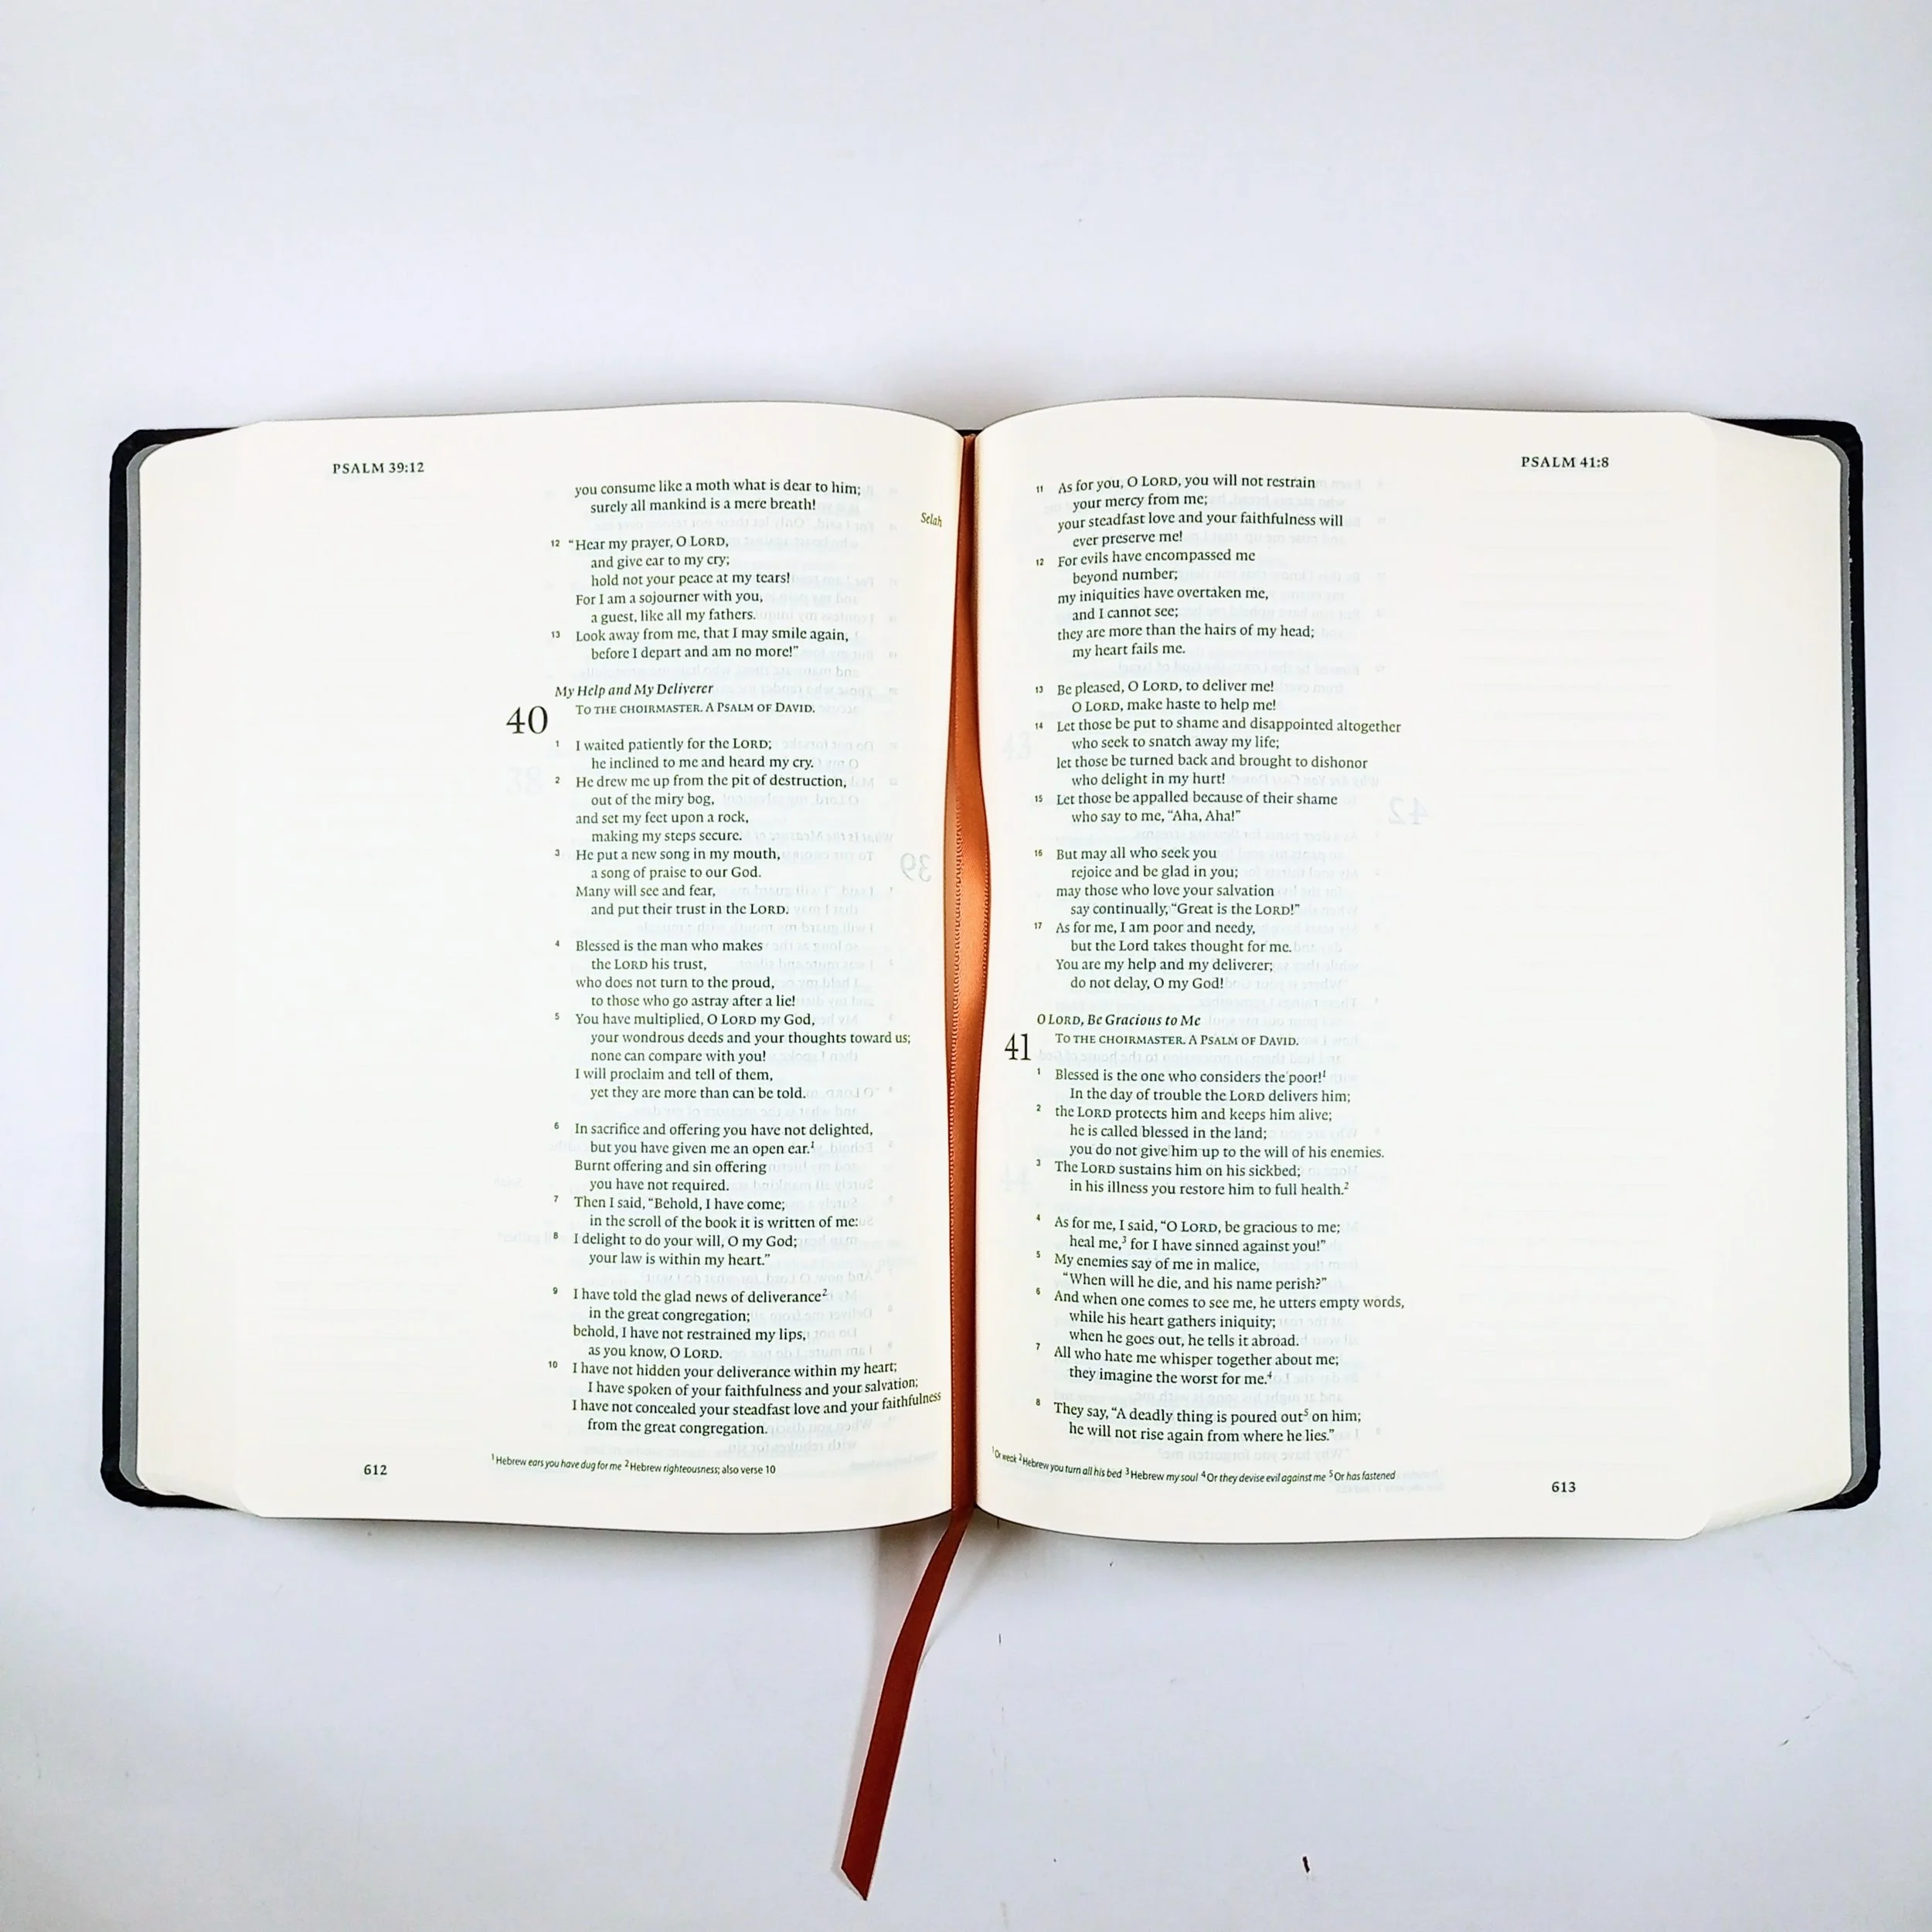 PSALM 39:12
you consume like a moth what is dear to him;
surely all mankind is a mere breath! Selah
12 “Hear my prayer, O LORD,
and give ear to my cry;
hold not your peace at my tears!
For I am a sojourner with you,
a guest, like all my fathers.
13 Look away from me, that I may smile again,
before I depart and am no more!”
My Help and My Deliverer
40 TO THE CHOIRMASTER. A PSALM OF DAVID.
1 I waited patiently for the LORD;
he inclined to me and heard my cry.
2 He drew me up from the pit of destruction,
out of the miry bog,
and set my feet upon a rock,
making my steps secure.
3 He put a new song in my mouth,
a song of praise to our God.
Many will see and fear,
and put their trust in the LORD.
4 Blessed is the man who makes
the LORD his trust,
who does not turn to the proud,
to those who go astray after a lie!
5 You have multiplied, O LORD my God,
your wondrous deeds and your thoughts toward us;
none can compare with you!
I will proclaim and tell of them,
yet they are more than can be told.
6 In sacrifice and offering you have not delighted,
but you have given me an open ear.1
Burnt offering and sin offering
you have not required.
7 Then I said, “Behold, I have come;
in the scroll of the book it is written of me:
8 I delight to do your will, O my God;
your law is within my heart.”
9 I have told the glad news of deliverance2
in the great congregation;
behold, I have not restrained my lips,
as you know, O LORD.
10 I have not hidden your deliverance within my heart;
I have spoken of your faithfulness and your salvation;
I have not concealed your steadfast love and your faithfulness
from the great congregation.
1 Hebrew ears you have dug for me 2 Hebrew righteousness; also verse 10
612
PSALM 41:8
11 As for you, O LORD, you will not restrain
your mercy from me;
your steadfast love and your faithfulness will
ever preserve me!
12 For evils have encompassed me
beyond number;
my iniquities have overtaken me,
and I cannot see;
they are more than the hairs of my head;
my heart fails me.
13 Be pleased, O LORD, to deliver me!
O LORD, make haste to help me!
14 Let those be put to shame and disappointed altogether
who seek to snatch away my life;
let those be turned back and brought to dishonor
who delight in my hurt!
15 Let those be appalled because of their shame
who say to me, “Aha, Aha!”
16 But may all who seek you
rejoice and be glad in you;
may those who love your salvation
say continually, “Great is the LORD!”
17 As for me, I am poor and needy,
but the Lord takes thought for me.
You are my help and my deliverer;
do not delay, O my God!
O LORD, Be Gracious to Me
41 TO THE CHOIRMASTER. A PSALM OF DAVID.
1 Blessed is the one who considers the poor!1
In the day of trouble the LORD delivers him;
2 the LORD protects him and keeps him alive;
he is called blessed in the land;
you do not give him up to the will of his enemies.
3 The LORD sustains him on his sickbed;
in his illness you restore him to full health.2
4 As for me, I said, “O LORD, be gracious to me;
heal me,3 for I have sinned against you!”
5 My enemies say of me in malice,
“When will he die, and his name perish?”
6 And when one comes to see me, he utters empty words,
while his heart gathers iniquity;
when he goes out, he tells it abroad.
7 All who hate me whisper together about me;
they imagine the worst for me.4
8 They say, “A deadly thing is poured out5 on him;
he will not rise again from where he lies.”
1 Or weak 2 Hebrew you turn all his bed 3 Hebrew my soul 4 Or they devise evil against me 5 Or has fastened
613